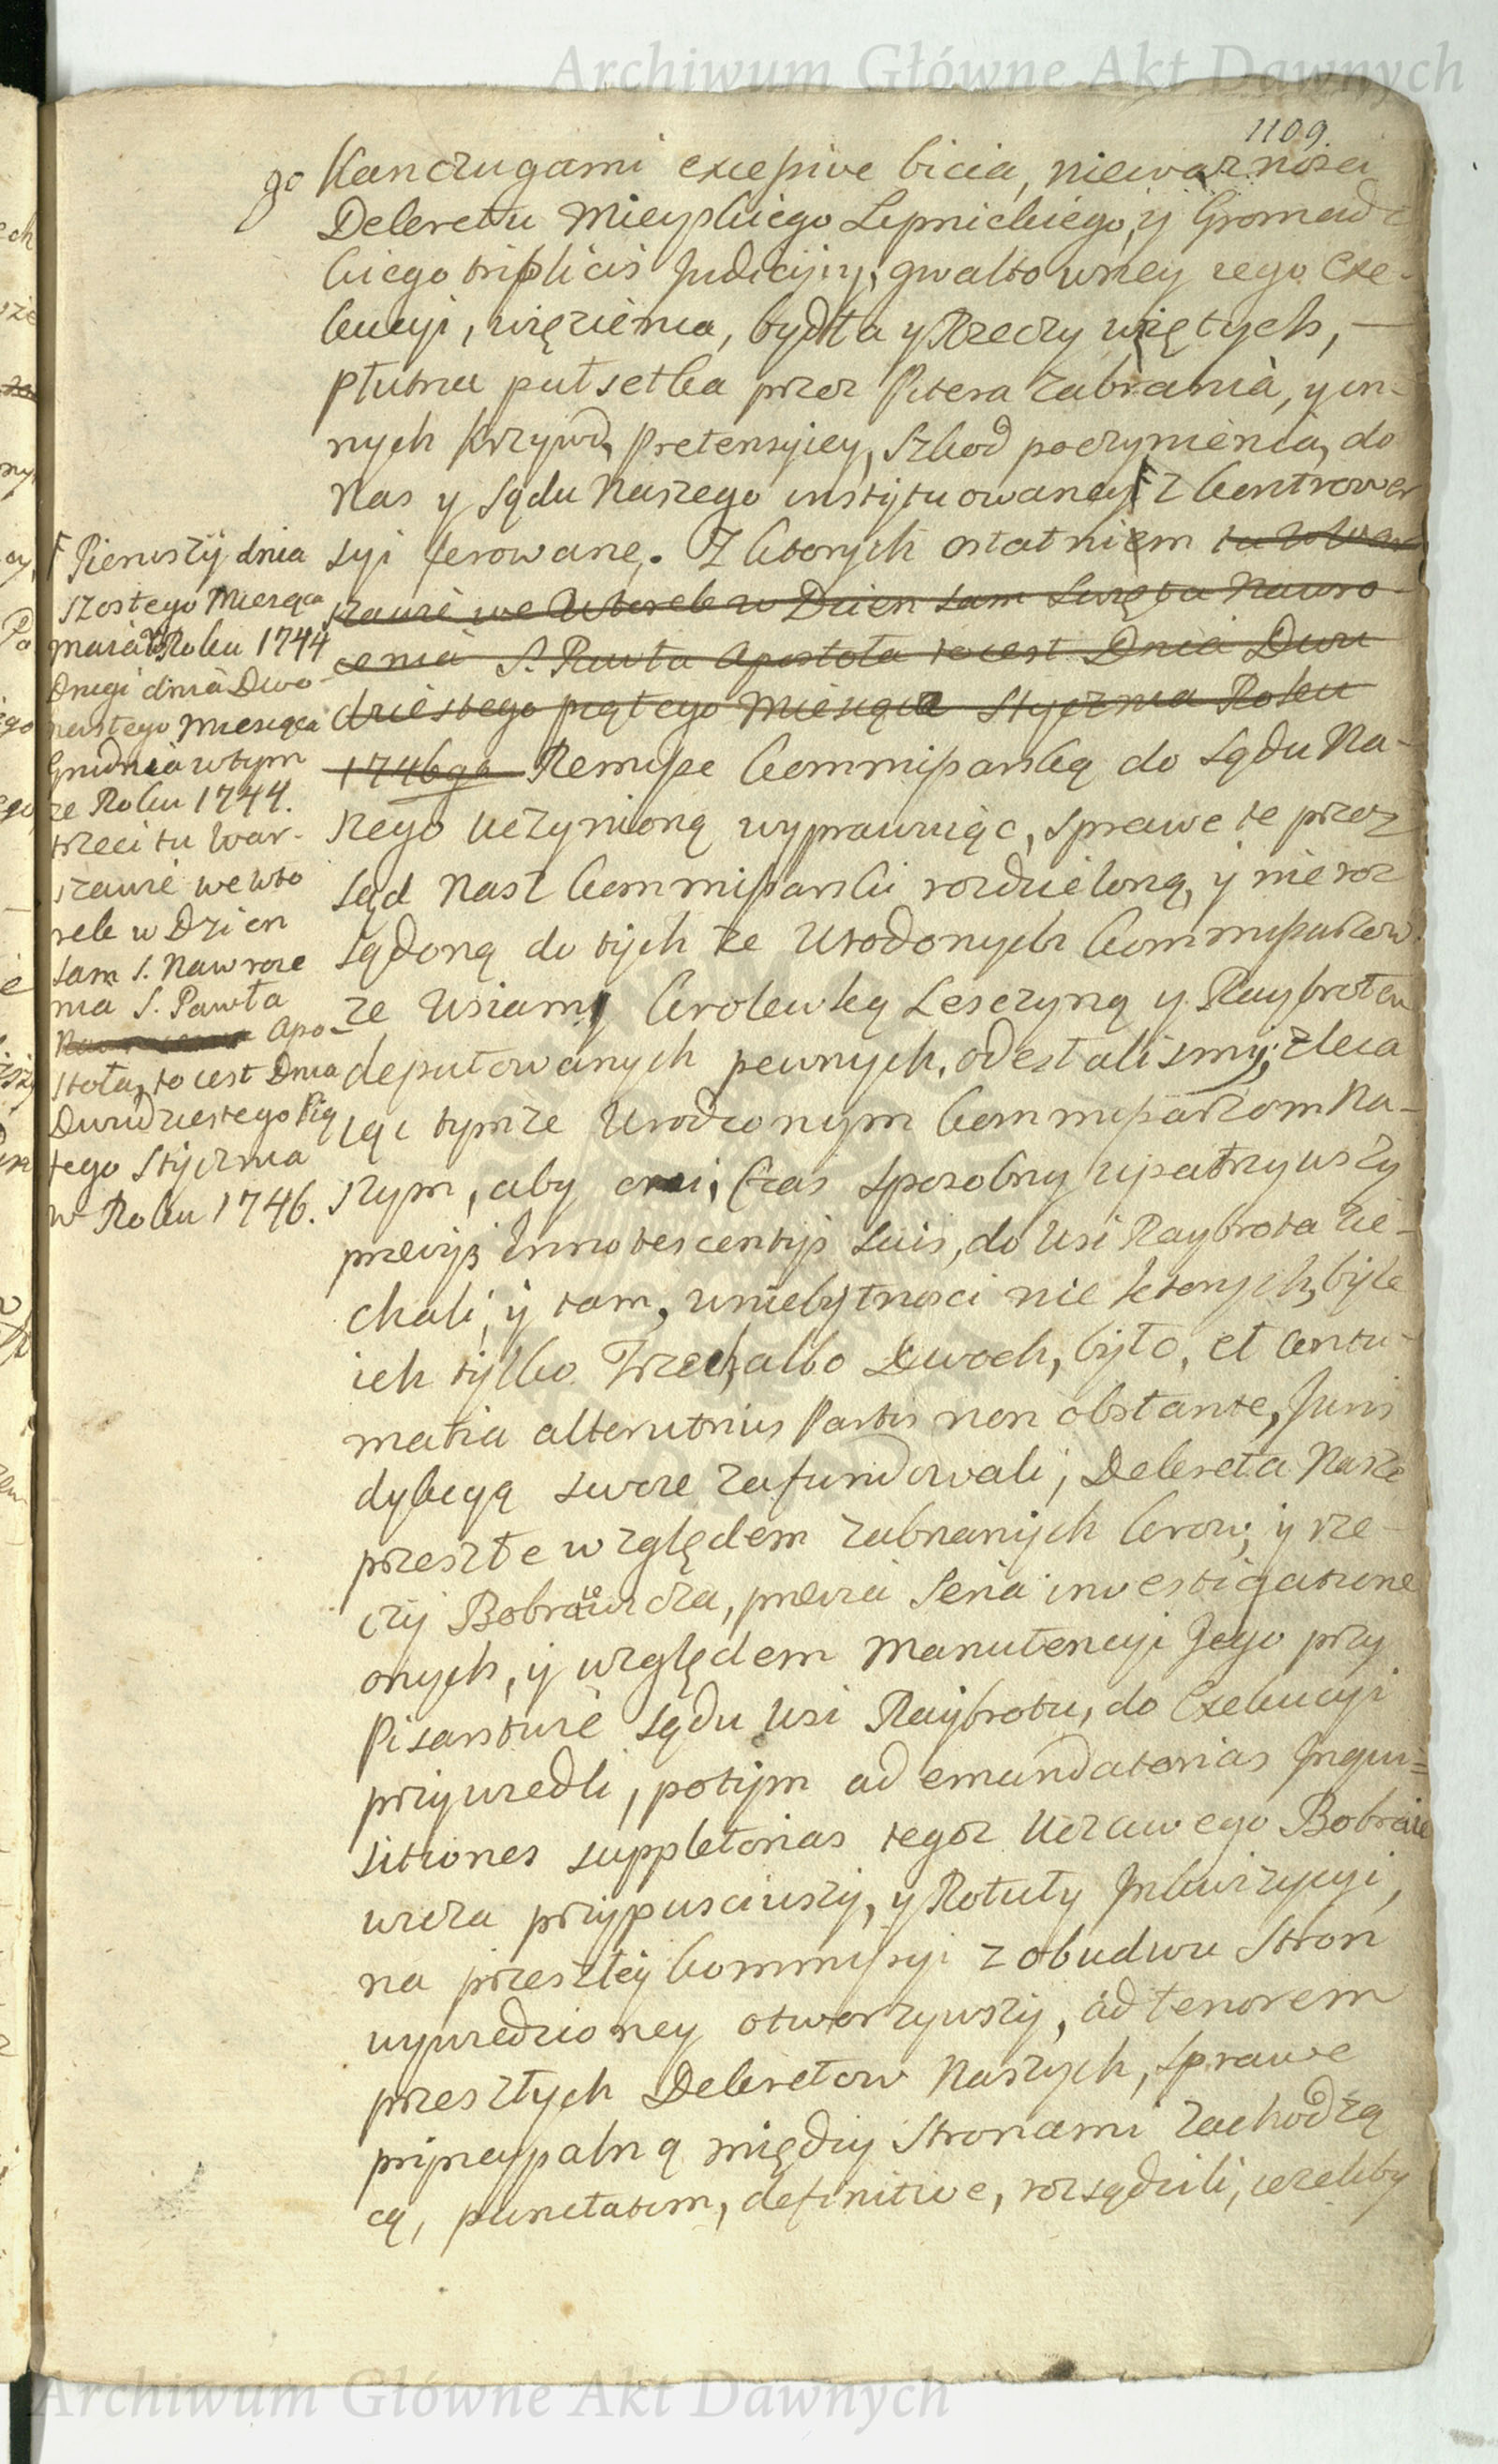 Archiwum Główne Akt Dawnych
1109.
go Kanczugami excessive bicia, nieważnosci
Dekretu Mieyskiego Lipnickiego, y Gromadz
kiego triplicis Judicij, y gwałtowney iego Exe-
kucyi, więzienia, bydła y Rzeczy wziętych, —
Płutna pułsetka przez Pitera zabrania, y in-
nych Krzywd, Pretensyiey, Szkod poczynienia, do
Nas y Sądu Naszego instytuowaney F z Kontrower
syi ferowane. Z ktorych ostatniem tu w War
szawie we Wtorek w Dzien sam Swięta Nawro-
cenia S. Pawła Apostoła to iest Dnia Dwu
dziestego piątego Miesiąca Stycznia Roku
1746go Remisse Kommissarską do Sądu Na-
szego uczynioną wyprawuiąc, sprawe te przez
Sąd Nasz Kommissarski rozdzieloną, y nie roz
sądzoną do tych ze Urodzonych Kommissarzow
ze Wsiamy Krolewską Leszczyną y Raybrotem
deputowanych pewnych, odesłalismy; zleca
iąc tymze Urodzonym Kommissarzom Na-
szym, aby oni, Czas sposobny upatrzywszy
previis Innotescentiis suis, do Wsi Raybrota zie-
chali, y tam, w niebytnosci nie ktorych, byle
ich tylko Trzech, albo Dwoch, było, et contu-
matia alterutrius Partis non obstante, Juris
dykcyą swoie zafundowali, Dekreta Nasze
przeszłe względem zabranych Krow, y rze-
czy Bobrowicza, previa seria investigatione
onych, y względem Manutencyi Jego przy
Pisarstwie Sądu Wsi Raybrotu, do Exekucyi
przywiedli, potym ad emandatorias Inqui-
sitiones suppletorias tegoz Uczciwego Bobro
wicza przypusciwszy, y Rotuły Inkwizycyi,
na przeszłey Kommissyi z obudwu Stron
wywiedzioney otworzywszy, ad tenorem
przeszłych Dekretow Naszych, sprawe
pryncypalną między Stronami zachodzą
cą, punctatim, definitive, rozsądzili, iezeliby
F Pierwszy dnia
szostego Miesiąca
Maia Roku 1744
Drugi dnia Dwo-
nastego Miesiąca
Grudnia w tym
ze Roku 1744.
trzeci tu War-
szawie we wto
rek w Dzien
sam S. Nawroce
nia S. Pawła
Apo-
stoła, to iest Dnia
Dwudziestego Pią
tego Stycznia
w Roku 1746.
Archiwum Główne Akt Dawnych